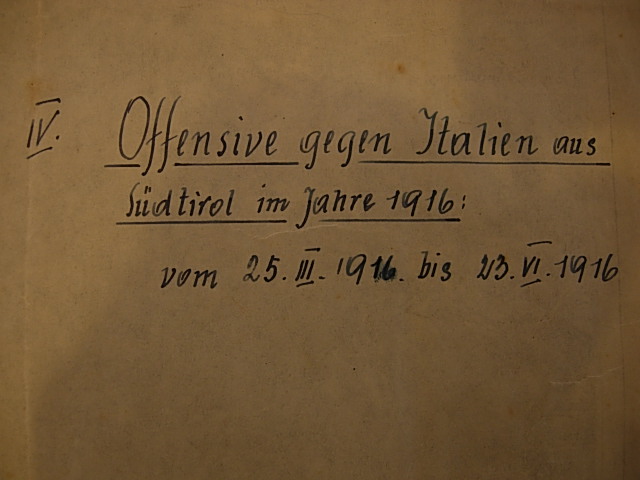 IV. Offensive gegen Italien aus
Südtirol im Jahre 1916:
vom 25. III. 1916. bis 23. VI. 1916